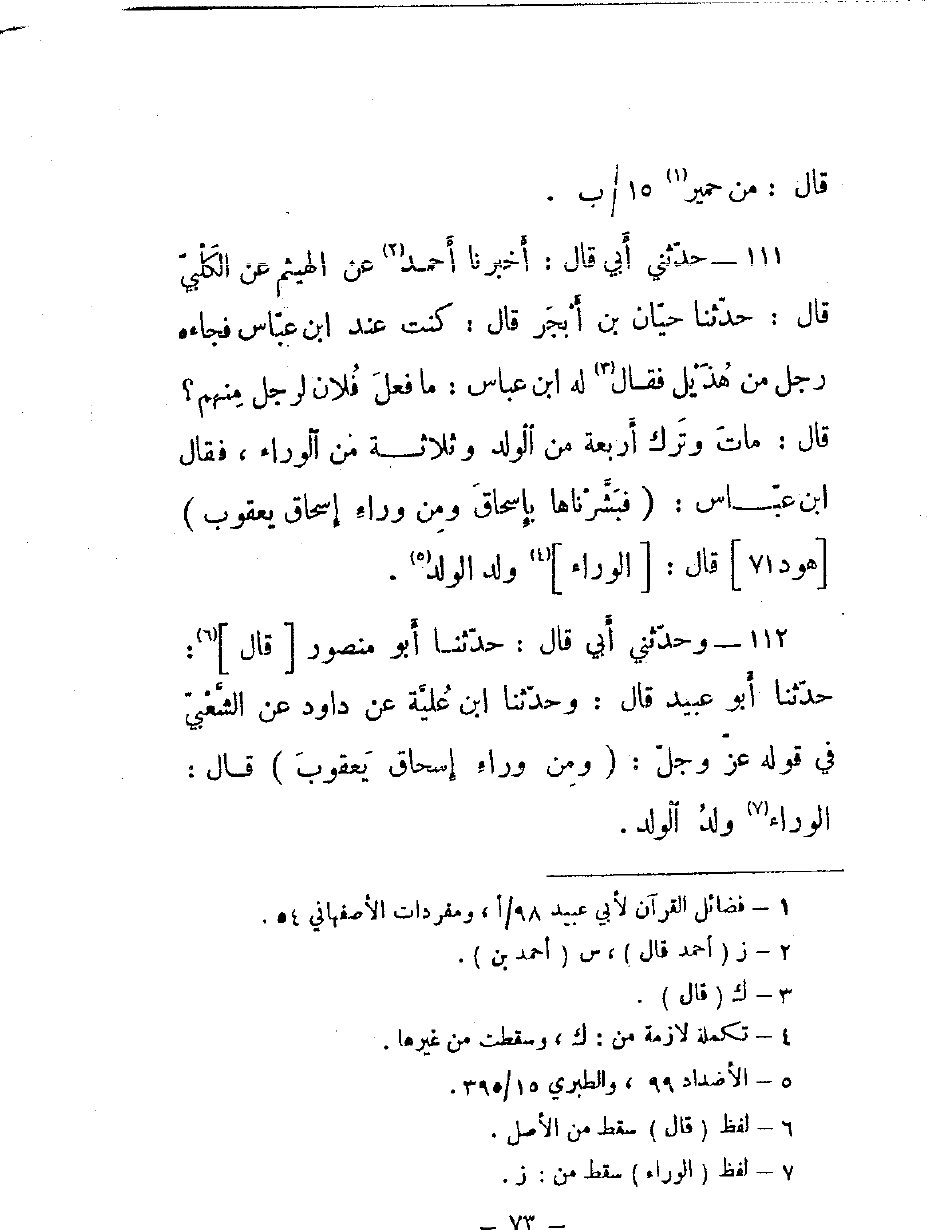 قال : من حمير(١) ١٥/ب .
١١١ ــ حدّثني أَبي قال : أَخبرنا أَحمد(٢) عن الهيثم عن الكَلْبيّ
قال : حدّثنا حيّان بن أَبْجَر قال : كنت عند ابن عبّاس فجاءه
رجل من هُذَيْل فقال(٣) له ابن عباس : ما فعلَ فُلان لرجل مِنهم ؟
قال : ماتَ وتَرك أَربعة من الولد وثلاثة من الوراء ، فقال
ابن عبّاس : ( فبَشَّرْناها بإسحاقَ ومِن وراءِ إسحاق يعقوب )
[هود ٧١] قال : [ الوراء ](٤) ولد الولد(٥) .
١١٢ ــ وحدّثني أَبي قال : حدّثنا أَبو منصور [ قال ](٦) :
حدّثنا أَبو عبيد قال : وحدّثنا ابن عُليَّة عن داود عن الشَّعْبيّ
في قوله عزّ وجلّ : ( ومِن وراء إسحاق يَعقوبَ ) قال :
الوراء(٧) ولدُ الولد .
١ ــ فضائل القرآن لأبي عبيد ٩٨/أ ، ومفردات الأصفهاني ٥٤ .
٢ ــ ز ( أحمد قال ) ، س ( أحمد بن ) .
٣ ــ ك ( قال ) .
٤ ــ تكملة لازمة من : ك ، وسقطت من غيرها .
٥ ــ الأضداد ٩٩ ، والطبري ٣٩٥/١٥ .
٦ ــ لفظ ( قال ) سقط من الأصل .
٧ ــ لفظ ( الوراء ) سقط من : ز .
ــ ٧٣ ــ